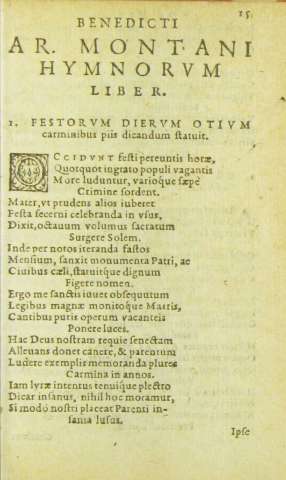 15.
BENEDICTI
AR. MONTANI
HYMNORVM
LIBER.
1. FESTORVM DIERVM OTIVM
carminibus piis dicandum statuit.
OCCIDVNT festi pereuntis horæ,
Quotquot ingrato populi vagantis
More luduntur, varioque sæpe
Crimine sordent.
Mater, vt prudens alios iuberet
Festa secerni celebranda in vsus,
Dixit, octauum volumus sacratum
Surgere Solem.
Inde per notos iteranda fastos
Mensium, sanxit monumenta Patri, ac
Ciuibus cæli, statuitque dignum
Figere nomen.
Ergo me sanctis iuuet obsequutum
Legibus magnæ monitoque Matris,
Cantibus puris operum vacanteis
Ponere luces.
Hac Deus nostram requie senectam
Alleuans donet canere, & parentum
Ludere exemplis memoranda plures
Carmina in annos.
Iam lyræ intentus tenuique plectro
Dicar insanus, nihil hoc moramur,
Si modo nostri placeat Parenti in-
sania lusus.
Ipse